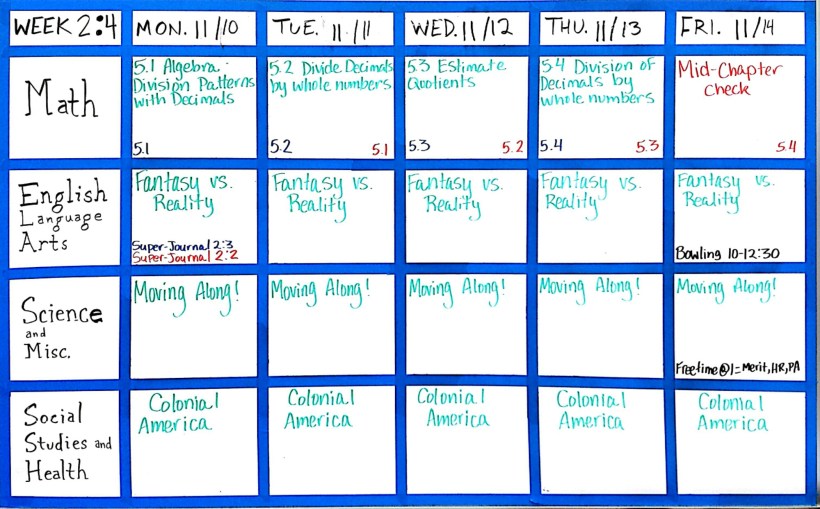 WEEK 2:4
MON. 11/10
TUE. 11/11
WED. 11/12
THU. 11/13
FRI. 11/14
Math
5.1 Algebra
Division Patterns
with Decimals
5.1
5.2 Divide Decimals
by whole numbers
5.2 5.1
5.3 Estimate
Quotients
5.3 5.2
5.4 Division of
Decimals by
whole numbers
5.4 5.3
Mid-Chapter
check
5.4
English
Language
Arts
Fantasy vs.
Reality
Super-Journal 2:3
Super-Journal 2:2
Fantasy vs.
Reality
Fantasy vs.
Reality
Fantasy vs.
Reality
Fantasy vs.
Reality
Bowling 10-12:30
Science
and
Misc.
Moving Along!
Moving Along!
Moving Along!
Moving Along!
Moving Along!
Freetime@1=Merit,HR,PA
Social
Studies and
Health
Colonial
America
Colonial
America
Colonial
America
Colonial
America
Colonial
America